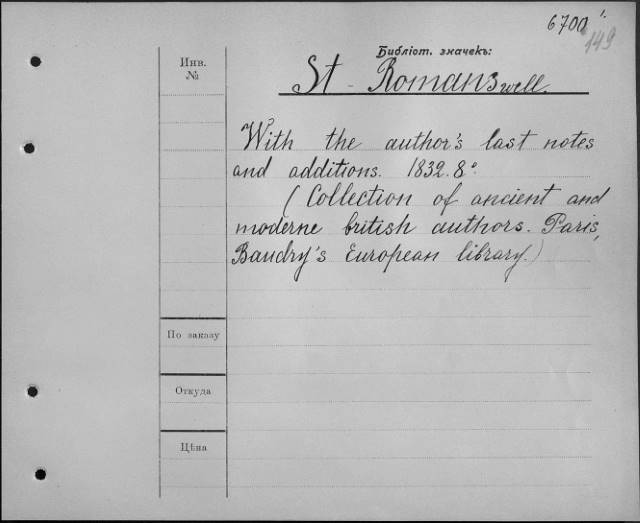 6700 1.
149
Инв.
№
Библіот. значекъ:
St - Romans well.
With the author's last notes
and additions. 1832. 8°.
( Collection of ancient and
moderne british authors. Paris,
Baudry's European library.)
По заказу
Откуда
Цѣна